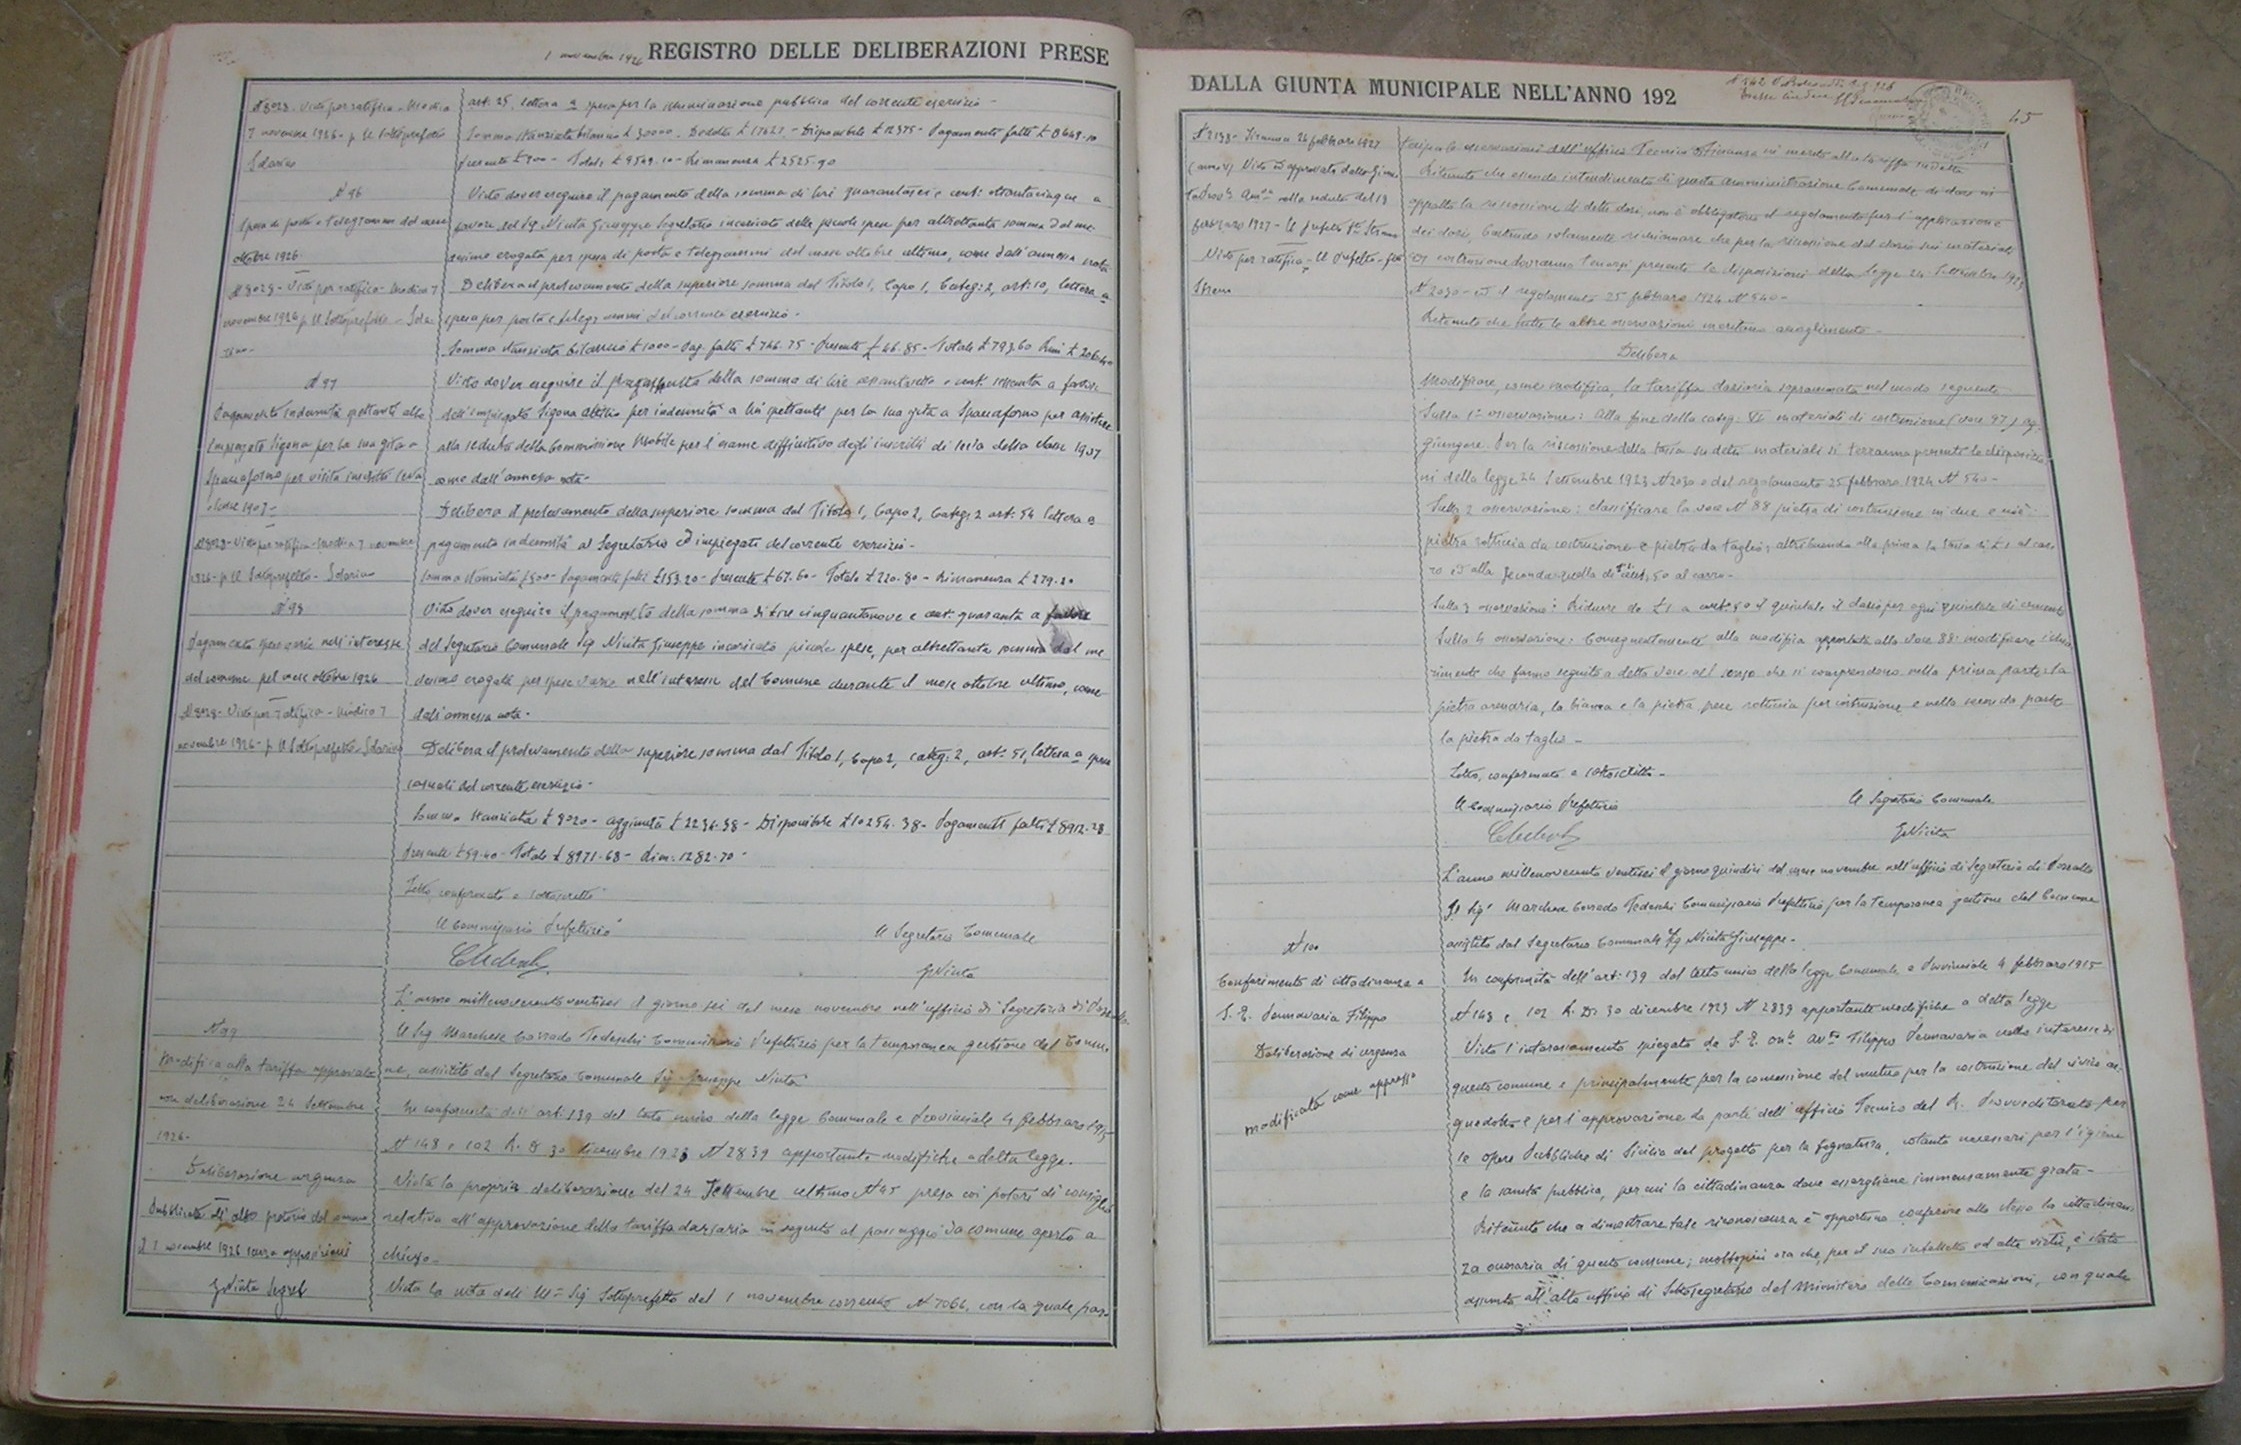 1 novembre 1926 REGISTRO DELLE DELIBERAZIONI PRESE
N 8028 - Visto per ratifica - Modica
7 novembre 1926 - p Il Sottoprefetto
art: 25, lettera a spesa per la illuminazione pubblica del corrente esercizio -
Somma stanziata bilancio £ 30000 - Disponibile £ 12375 - Pagamenti fatti £
Presente £ 900 - Totale £ 9549.10 - Rimanenza £ 2525.90
N 96
Spesa di posta e telegrammi del mese
ottobre 1926.
N 8028 - Visto per ratifica - Modica 7
novembre 1926 p Il Sottoprefetto
Visto dover eseguire il pagamento della somma di lire quarantasei e cent: ottantacinque a
favore del Sig Nicita Giuseppe Segretario incaricato delle piccole spese per altrettanta somma dal me
desimo erogata per spesa di posta e telegrammi del mese ottobre ultimo, come dall'annessa nota
Delibera il prelevamento della superiore somma dal Titolo 1, Capo 1, Categ: 2, art: 10, lettera a
spesa per posta e telegrammi del corrente esercizio -
Somma stanziata bilancio £ 1000 - Pag. fatti £ 746.75 - Presente £ 46.85 - Totale £ 793.60 Rim £ 206.40
N 97
Pagamento indennità spettante allo
Impiegato Sigona per la sua gita a
Spaccaforno per visita inscritti leva
classe 1907 -
N 8028 - Visto per ratifica - Modica 7 novembre
1926 - p Il Sottoprefetto
Visto dover eseguire il pagamento della somma di lire sessantasette e cent. sessanta a favore
dell'impiegato Sigona Attilio per indennità a lui spettante per la sua gita a Spaccaforno per assistere
alla seduta della Commissione Mobile per l'esame diffinitivo degli inscritti di leva della classe 1907
come dall'annessa nota -
Delibera il prelevamento della superiore somma dal Titolo 1, Capo 2, Categ: 2 art: 54 lettera a
pagamento indennità al Segretario ed impiegati del corrente esercizio -
Somma stanziata £ 500 - Pagamenti fatti £ 153.20 - Presente £ 67.60 - Totale £ 220.80 - Rimanenza £ 279.20
N 98
Pagamento spese varie nell'interesse
del comune pel mese ottobre 1926
N 8028 - Visto per ratifica - Modica 7
novembre 1926 - p Il Sottoprefetto
Visto dover eseguire il pagamento della somma di lire cinquantanove e cent. quaranta a favore
del Segretario Comunale Sig Nicita Giuseppe incaricato piccole spese, per altrettanta somma dal me
desimo erogata per spese varie nell'interesse del Comune durante il mese ottobre ultimo, come
dall'annessa nota -
Delibera il prelevamento della superiore somma dal Titolo 1, Capo 2, categ: 2, art: 51, lettera a spese
casuali del corrente esercizio -
Somma stanziata £ 8020 - aggiunta £ 2234.38 - Disponibile £ 10254.38 - Pagamenti fatti £ 8912.28
Presente £ 59.40 - Totale £ 8971.68 - Rim: 1282.70 -
Letto, confermato e sottoscritto
Il Commissario Prefettizio
Il Segretario Comunale
GNicita
L'anno millenovecentoventisei il giorno sei del mese novembre nell'ufficio di Segreteria di
N 99
Modifica alla tariffa approvata
con deliberazione 24 Settembre
1926 -
Deliberazione urgenza
Pubblicata all'albo pretorio del comune
novembre 1926 senza opposizioni
GNicita Segret
Il Sig Marchese Corrado Tedeschi Commissario Prefettizio per la temporanea gestione del Comu
ne, assistito dal Segretario Comunale Sig Giuseppe Nicita
In conformità dell'art: 139 del testo unico della legge Comunale e Provinciale 4 febbraro 1915
N 148 e 102 R. D 30 dicembre 1923 N 2839 apportante modifiche a detta legge.
Vista la propria deliberazione del 24 Settembre ultimo N 95 presa coi poteri di consiglio
relativa all'approvazione della tariffa daziaria in seguito al passaggio da comune aperto a
chiuso -
Vista la nota dell'Ill Sig Sottoprefetto del 1 novembre corrente N 7066, con la quale par
DALLA GIUNTA MUNICIPALE NELL'ANNO 192
45
N 2138 - Siracusa 26 febbraro 1927
(anno V) Visto ed approvato dalla Giun
ta nella seduta del 19
febbraro 1927 - Il Prefetto
Visto per ratifica - Il Prefetto
tecipa le osservazioni dell'ufficio Tecnico Finanza in merito alla tariffa suddetta
Ritenuto che essendo intendimento di questa amministrazione Comunale di dare in
appalto la riscossione di detti dazi, non è obbligatorio il regolamento per l'applicazione
dei dazi, bastando solamente richiamare che per la riscossione del dazio sui materiali
di costruzione dovranno tenersi presente le disposizioni della legge 24 Settembre 1923
N 2030 - ed il regolamento 25 febbraro 1924 N 540 -
Ritenuto che tutte le altre osservazioni meritano accoglimento -
Delibera
Modificare, come modifica, la tariffa daziaria sopracennata nel modo seguente
Sulla 1ª osservazione: alla fine della categ. VI materiali di costruzione (voce 97) ag
giungere. Per la riscossione della tassa su detti materiali si terranno presente le disposizio
ni della legge 24 Settembre 1923 N 2030 e del regolamento 25 febbraro 1924 N 540 -
Sulla 2 osservazione: classificare la voce N 88 pietra di costruzione in due e cioè:
pietra rotticcia da costruzione e pietra da taglio; attribuendo alla prima la tassa di £ 1 al car
ro ed alla seconda quella di al carro -
Sulla 3 osservazione: Ridurre da £ 1 a cent. 50 il quintale il dazio per ogni quintale di cemento
Sulla 4 osservazione: Conseguentemente alla modifica apportata alla voce 88: modificare i chia
rimenti che fanno seguito a detta voce nel senso che si comprendono nella prima parte: la
pietra arenaria, la bianca e la pietra pece rotticcia per costruzione e nella seconda parte
la pietra da taglio -
Letto, confermato e sottoscritto -
Il Commissario Prefettizio
Il Segretario Comunale
GNicita
L'anno millenovecento ventisei il giorno quindici del mese novembre nell'ufficio di Segreteria di
Il Sig Marchese Corrado Tedeschi Commissario Prefettizio per la temporanea gestione del Comune
assistito dal Segretario Comunale Sig Nicita Giuseppe -
N 100
Conferimento di cittadinanza a
S. E. Pennavaria Filippo
Deliberazione di urgenza
modificata come appresso
In conformità dell'art: 139 del testo unico della legge Comunale e Provinciale 4 febbraro 1915
N 148 e 102 R. D. 30 dicembre 1923 N 2839 apportante modifiche a detta legge
Visto l'interessamento spiegato da S. E. on avv Filippo Pennavaria nello interesse di
questo comune e principalmente per la concessione del mutuo per la costruzione del civico ac
quedotto e per l'approvazione da parte dell'ufficio Tecnico del R. Provveditorato per
le opere Pubbliche di Sicilia del progetto per la fognatura, cotanto necessari per l'igiene
e la sanità pubblica, per cui la cittadinanza deve essergliene immensamente grata -
Ritenuto che a dimostrare tale riconoscenza è opportuno conferire allo stesso la cittadinan
za onoraria di questo comune; moltopiù ora che, per il suo intelletto ed alte virtù, è stato
assunto all'alto ufficio di Sottosegretario del Ministero delle Comunicazioni, con quale